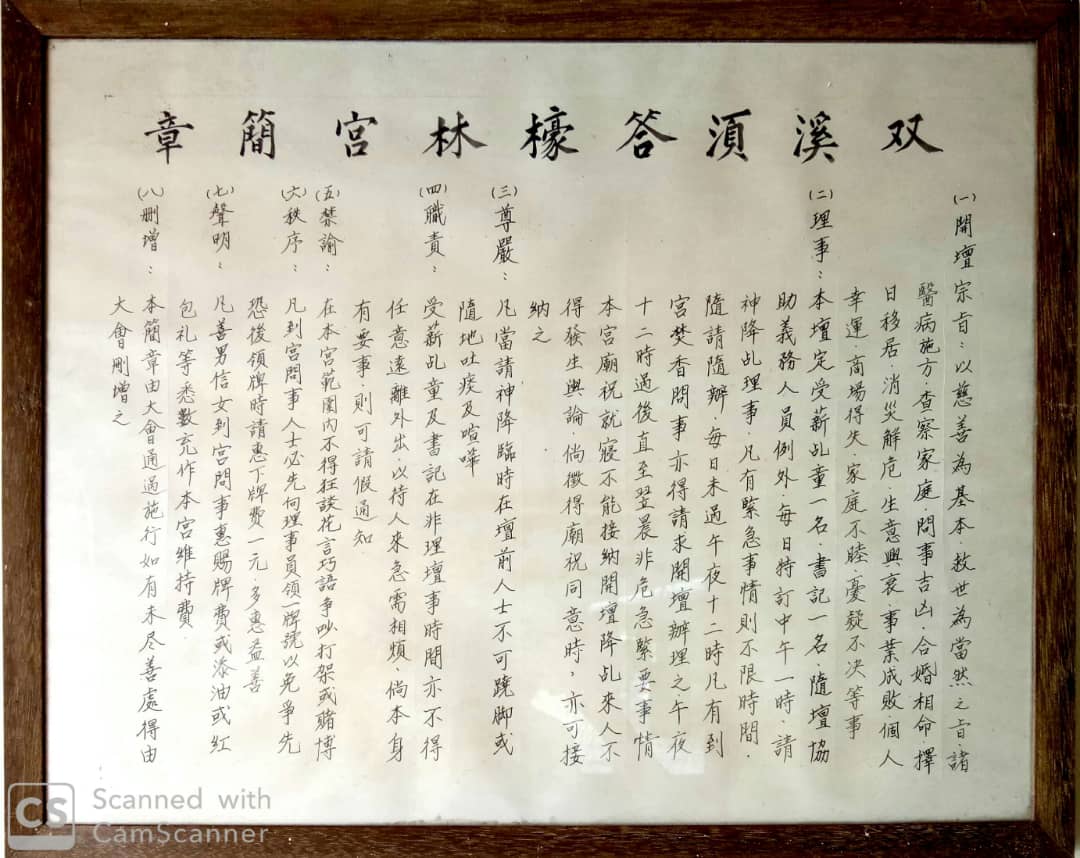 双溪湏答檺林宮簡章
(一)開壇宗旨：以慈善為基本．救世為當然之旨．諸
醫病施方．查察家庭．問事吉凶．合婚相命．擇
日移居．消災解危．生意興衰．事業成敗．個人
幸運．商場得失．家庭不睦．憂疑不决等事
(二)理事：本壇定受薪乩童一名．書記一名．隨壇協
助義務人員例外．每日特訂中午一時．請
神降乩理事．凡有緊急事情則不限時間．
隨請隨辦．每日未過午夜十二時凡有到
宮焚香問事亦得請求開壇辦理之．午夜
十二時過後直至翌晨．非危急緊要事情
本宮廟祝就寢不能接納開壇降乩．來人不
得發生輿論．倘徵得廟祝同意時，亦可接
納之．
(三)尊嚴：凡當請神降臨時在壇前人士不可蹺脚或
隨地吐痰及喧嘩
(四)職責：受薪乩童及書記在非理壇事時間亦不得
任意遠離外出．以待人來急需相煩．倘本身
有要事．則可請假通知．
(五)禁諭：在本宮範圍內不得狂談花言巧語爭吵打架或賭博
(六)秩序：凡到宮問事人士必先向理事員領一牌號以免爭先
恐後領牌時請惠下牌費一元．多惠益善
(七)聲明：凡善男信女到宮問事惠賜牌費或添油或紅
包礼等悉數充作本宮維持費．
(八)删增：本簡章由大會通過施行如有未尽善處得由
大會刪增之
CS Scanned with
CamScanner